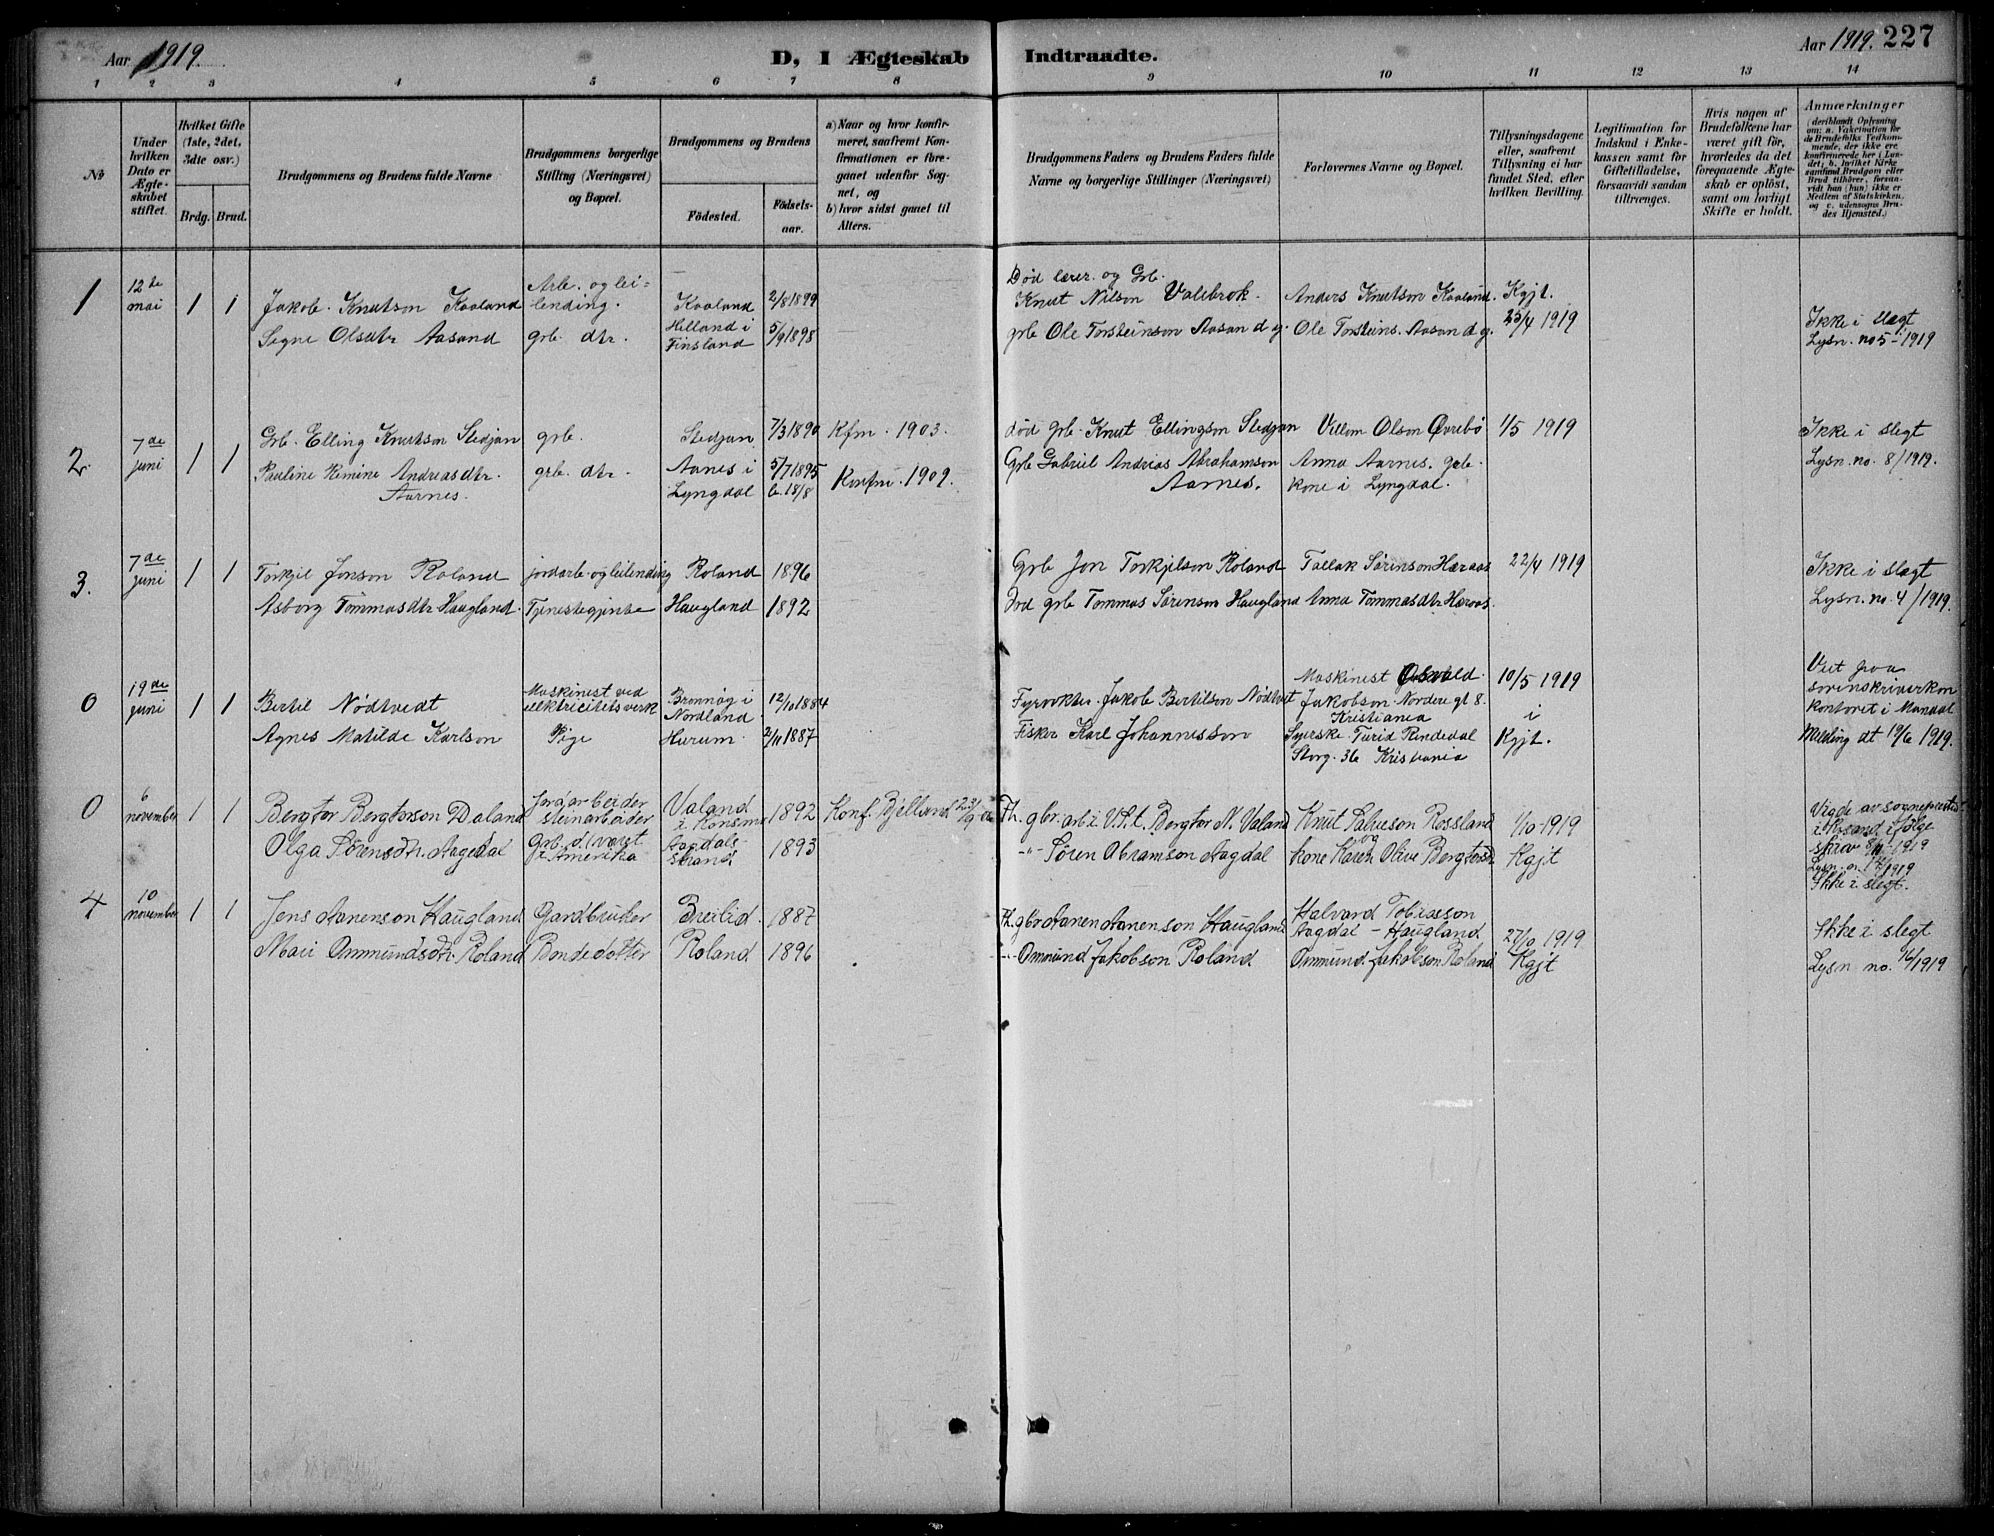 Aar 1919.
D, I Ægteskab
Indtraadte.
Aar 1919. 227
1 2 3 4 5 6 7 8 9 10 11 12 13 14
No
Under hvilken Dato er Ægteskabet stiftet.
Hvilket Gifte (1ste, 2det, 3dte osv.)
Brdg. Brud.
Brudgommens og Brudens fulde Navne
Brudgommens borgerlige Stilling (Næringsvei) og Bopæl.
Brudgommens og Brudens
Fødested.
Fødselsaar.
a) Naar og hvor konfirmeret, saafremt Konfirmationen er foregaaet udenfor Sognet, og
b) hvor sidst gaaet til Alters.
Brudgommens Faders og Brudens Faders fulde Navne og borgerlige Stillinger (Næringsvei)
Forlovernes Navne og Bopæl.
Tillysningsdagene eller, saafremt Tillysning ei har fundet Sted, efter hvilken Bevilling.
Legitimation for Indskud i Enkekassen samt for Giftetilladelse, forsaavidt saadan tiltrænges.
Hvis nogen af Brudefolkene har været gift før, hvorledes da det foregaaende Ægteskab er opløst, samt om lovligt Skifte er holdt.
Anmærkninger
(deriblandt Oplysning om: a. Vakcination for de Brudefolks Vedkommende, der ikke ere konfirmerede her i Landet; b. hvilket Kirkesamfund Brudgom eller Brud tilhører, forsaavidt han (hun) ikke er Medlem af Statskirken, og c. udensogns Brudes Hjemsted.)
1 12te mai 1 1
Jakob Knutson Kaaland
Arb. og leilending.
Kaaland 2/8 1899
Død lærer og Grb. Knut Nilson Valebrok.
Anders Knutson Kaaland.
Kgjt.
Signe Olsdtr Aasand
grb. dtr.
Helland i Finsland 5/9 1898
grb Ole Torsteinson Aasand g.
Ole Torsteins. Aasand g.
25/4 1919
Ikke i slegt
Lysn. no 5 - 1919
2. 7de juni 1 1
Grb. Elling Knutson Stedjan
grb.
Stedjan 7/3 1890
Kfm. 1903.
død grb. Knut Ellingson Stedjan
Villom Olson Øvrebø
1/5 1919
Ikke i slegt
Pauline Kemine Andreasdtr. Aarnes.
grb. dtr.
Aanes i Lyngdal 5/7 1895 b. 18/8
Konfm. 1909.
Grb Gabriel Andrias Abrahamson Aarnes.
Anna Aarnes. grb. kone i Lyngdal.
Lysn. no. 8/1919.
3. 7de juni 1 1
Torkjil Jonson Roland
jordarb. og leilending
Roland 1896
Grb Jon Torkjilson Roland
Tallak Sørinson Høraas
22/4 1919
Ikke i slegt
Asborg Tommasdtr Haugland.
Tjenestegjente
Haugland 1892
død grb Tommas Sørenson Haugland
Anna Tommasdtr Høraas.
Lysn. no. 4/1919.
0 19de juni 1 1
Bertil Nødtvedt
Maskinest ved elektricitetsverk
Brønnøy i Nordland 12/10 1884
Fyrvokter Jakob Bertilson Nødtvet
Maskinest Osvald Jakobson Nordere gt 8. Kristiania
10/5 1919 i Kgjt.
Viet paa sorenskriverkontoret i Mandal
Agnes Matilde Karlson
Pige
Hurum 2/11 1887
Fisker Karl Johannesson
Syerske Turid Rindedal Storg. 36 Kristiania
Melding dt 19/6 1919.
0 6 november 1 1
Bergtor Bergtorson Daland
Jordarbeider steinarbeider
Valand i Konsmo 1892
Konf. Bjelland
Fh. gbr. arb i V.St. Bergtor N. Valand
Knut Salveson Rossland og
1/10 - 1919
Olga Sörensdtr. Aagedal
Grb. d. (været i Amerika
Aagdalsstrand 1893
-"- Sören Abramson Aagdal
kone Karen Olive Bergtorsd
Kgjt
Vigde av sogneprested i Krsand ifölge skriv 8/11-1919
Ikke i slegt.
4 10 november 1 1
Jens Aanenson Haugland
Gardbruker
Breilid. 1887
Fh. gbr Aanen Aanenson Haugland
Halvard Tobiasson Aagdal - Haugland
27/10 1919
Ikke i slegt
Mari Ommundsdtr. Roland
Bondedotter
Roland 1896
-"- Ommund Jakobson Roland
Ommund Jakobson Roland
Kgjt
Lysn no. 16/1919